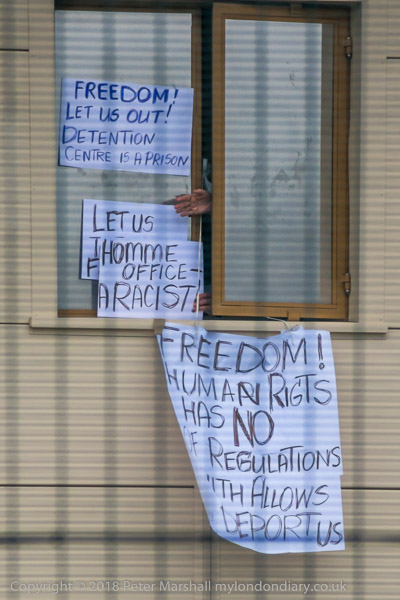 FREEDOM!
LET US OUT!
DETENTION
CENTRE IS A PRISON
LET US
HOMME
OFFICE-
A RACIST!
FREEDOM!
HUMAN RIGTS
HAS NO
REGULATIONS
ITH ALLOWS
DEPORT US
Copyright © 2018 Peter Marshall mylondondiary.co.uk